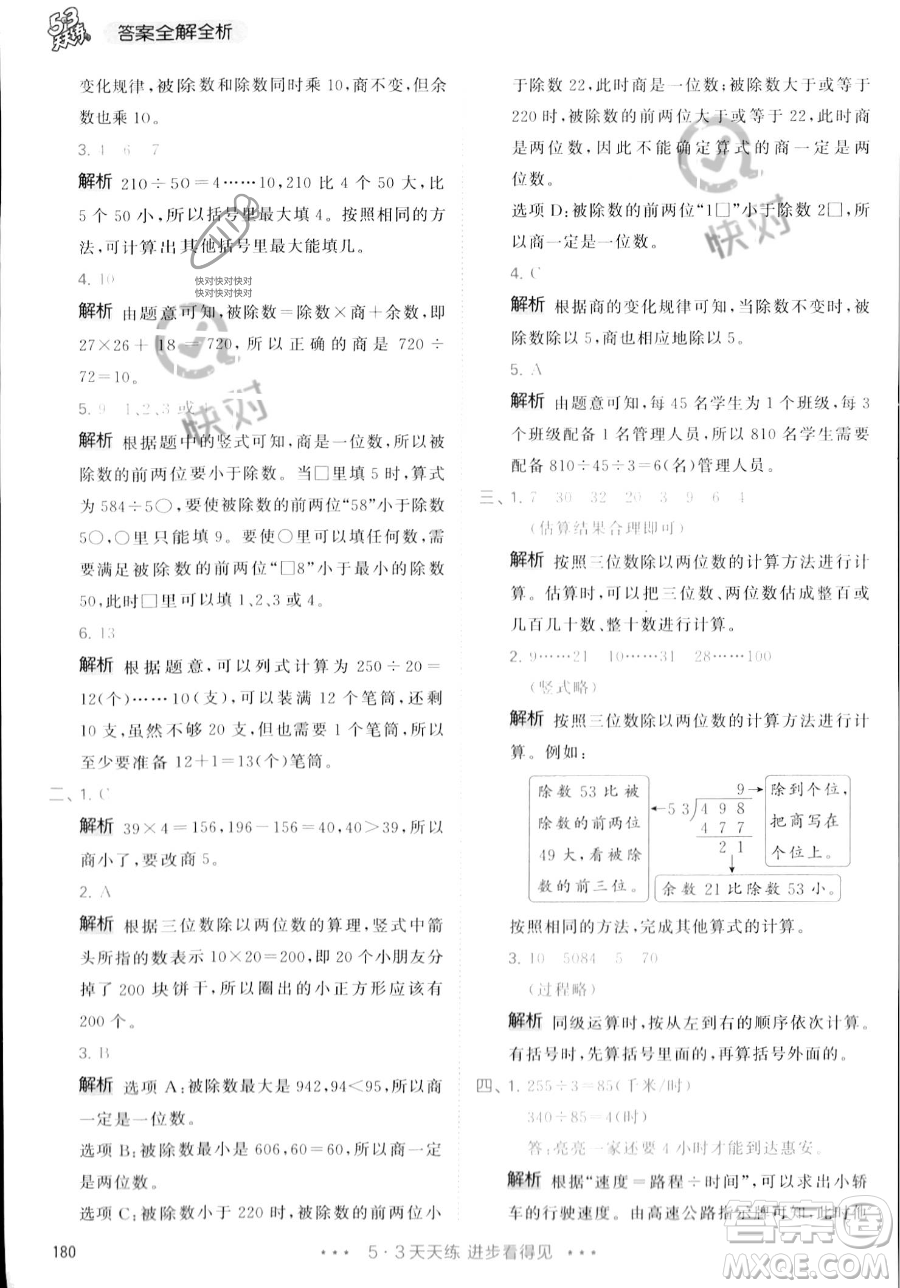 53天天练 答案全解全析
变化规律,被除数和除数同时乘 10,商不变,余
数也乘 10。
3. 4 6 7
解析 210÷50=4……10,210 比 4 个 50 大,比
5 个 50 小,所以括号里最大填 4。按照相同的方
法,可计算出其他括号里最大能填几。
4. 10
解析 由题意可知,被除数=除数×商+余数,即
27×26+18=720,所以正确的商是 720÷
72=10。
5. 9 1、2、3 或
解析 根据题中的竖式可知,商是一位数,所以被
除数的前两位要小于除数。当□里填 5 时,算式
为 584÷5○,要使被除数的前两位“58”小于除数
5○,○里只能填 9。要使○里可以填任何数,需
要满足被除数的前两位“□8”小于最小的除数
50,此时□里可以填 1、2、3 或 4。
6. 13
解析 根据题意,可以列式计算为 250÷20=
12(个)……10(支),可以装满 12 个笔筒,还剩
10 支,虽然不够 20 支,但也需要 1 个笔筒,所以
至少要准备 12+1=13(个)笔筒。
二、1. C
解析 39×4=156,196-156=40,40>39,所以
商小了,要改商 5。
2. A
解析 根据三位数除以两位数的算理,竖式中箭
头所指的数表示 10×20=200,即 20 个小朋友分
掉了 200 块饼干,所以圈出的小正方形应该有
200 个。
3. B
解析 选项 A:被除数最大是 942,94<95,所以商
一定是一位数。
选项 B:被除数最小是 606,60=60,所以商一定
是两位数。
选项 C:被除数小于 220 时,被除数的前两位小
于除数 22,此时商是一位数;被除数大于或等于
220 时,被除数的前两位大于或等于 22,此时商
是两位数。因此,不能确定算式的商一定是两
位数。
选项 D:被除数的前两位“1□”小于除数 2□,所
以商一定是一位数。
4. C
解析 根据商的变化规律可知,当除数不变时,被
除数除以 5,商也相应地除以 5。
5. A
解析 由题意可知,每 45 名学生为 1 个班级,每 3
个班级配备 1 名管理人员,所以 810 名学生需要
配备 810÷45÷3=6(名)管理人员。
三、1. 7 30 32 20 3 9 6 4
(估算结果合理即可)
解析 按照三位数除以两位数的计算方法进行计
算。估算时,可以把三位数、两位数估成整百或
几百几十数、整十数进行计算。
2. 9……21 10……31 28……100
(竖式略)
解析 按照三位数除以两位数的计算方法进行计
算。例如:
除数 53 比被
除数的前两位
49 大,看被除
数的前三位。
9
53)498
477
21
除到个位,
把商写在
个位上。
余数 21 比除数 53 小。
按照相同的方法,完成其他算式的计算。
3. 10 5084 5 70
(过程略)
解析 同级运算时,按从左到右的顺序依次计算。
有括号时,先算括号里面的,再算括号外面的。
四、1. 255÷3=85(千米/时)
340÷85=4(时)
答:亮亮一家还要 4 小时才能到达惠安。
解析 根据“速度=路程÷时间”,可以求出小轿
车的行驶速度。由高速公路指示牌可知,从他
180
5·3天天练 进步看得见
快对
快对
快对快对快对
快对快对快对